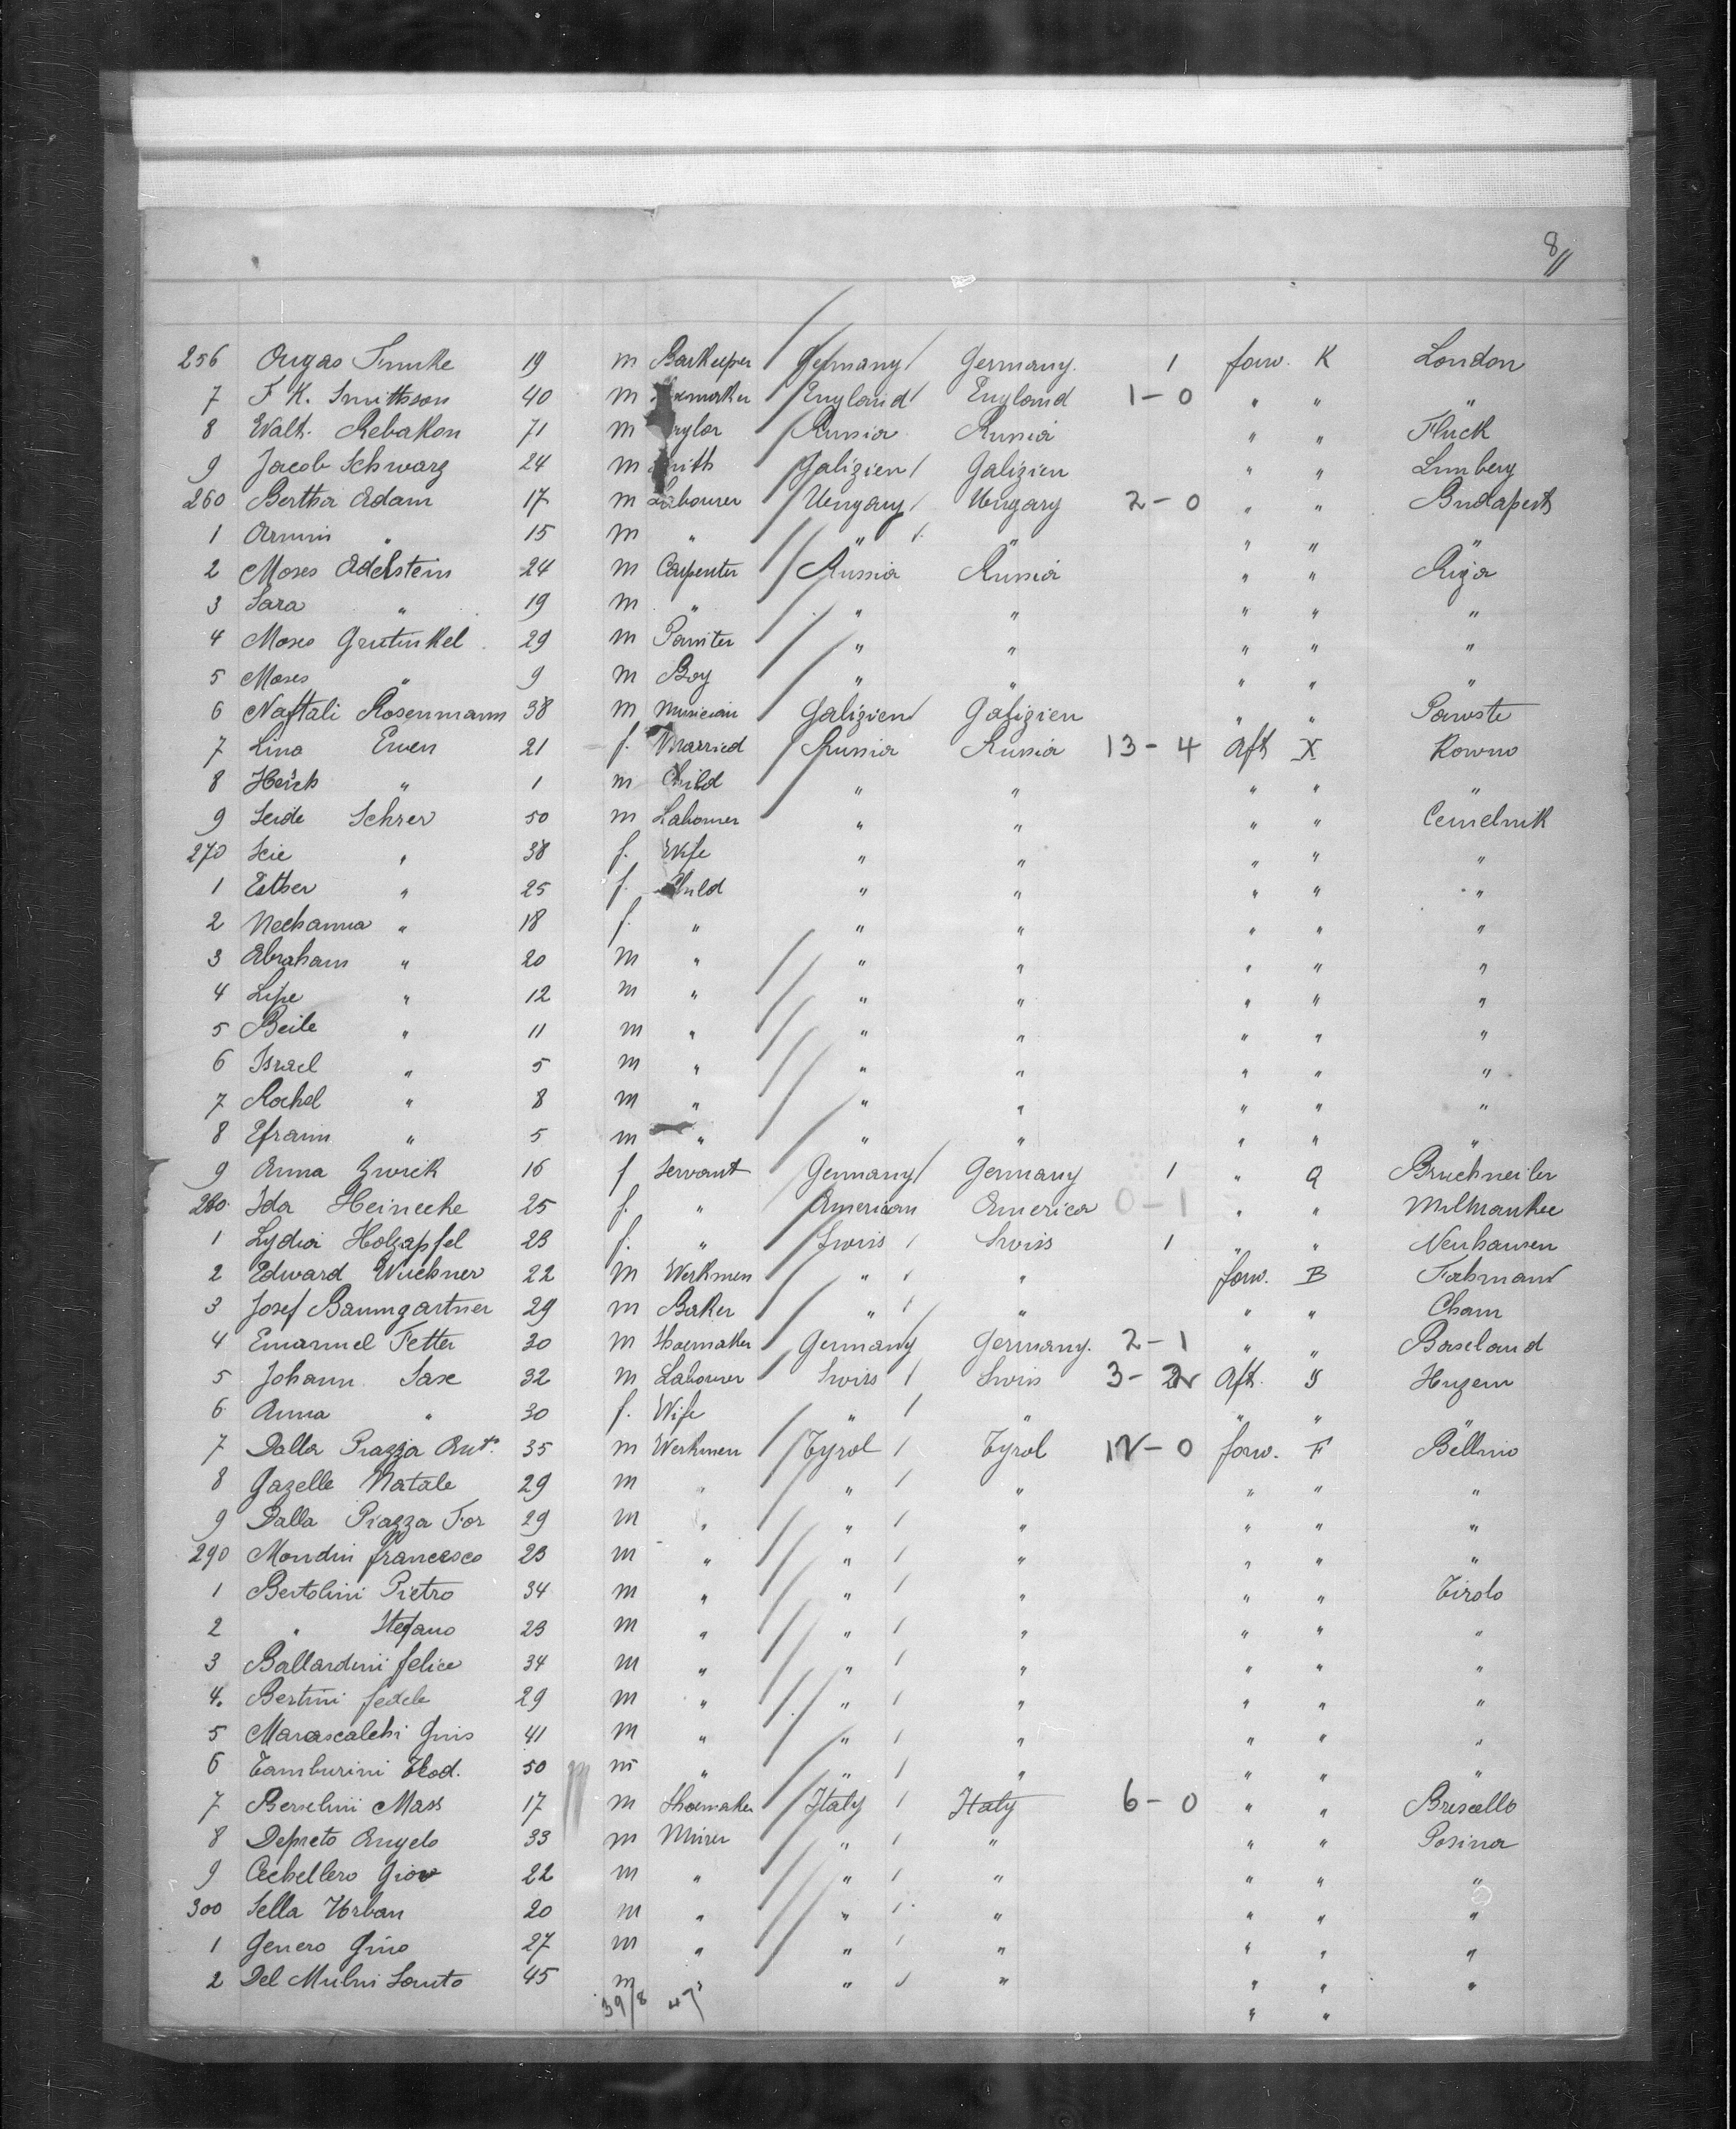 8//
256 Augas Timke 19 m Barkeeper Germany Germany. 1 forw. K London
7 F. K. Smithson 40 m England England 1-0 " " "
8 Walt. Rebakon 71 m Russia Russia " " Fluck
9 Jacob Schwarz 24 m Galizien Galizien " " Limberg
260 Bertha Adam 17 m Labourer Ungary Ungary 2-0 " " Budapest
1 Armin " 15 m " " " " " "
2 Moses Adelstein 24 m Carpenter Russia Russia " " Riga
3 Sara " 19 m " " " " " "
4 Moses Grutinkel 29 m Painter " " " " "
5 Moses " 9 m Boy " " " " "
6 Naftali Rosenmann 38 m Musician Galizien Galizien " " Pawste
7 Lina Ewen 21 f. Married Russia Russia 13-4 Aft X Kowno
8 Hersch " 1 m Child " " " " "
9 Seide Schrer 50 m Labourer " " " " Cemelnik
270 Seie " 38 f. Wife " " " " "
1 Esther " 25 f. Child " " " " "
2 Nechanna " 18 f. " " " " " "
3 Abraham " 20 m " " " " " "
4 Lipe " 12 m " " " " " "
5 Beile " 11 m " " " " " "
6 Israel " 5 m " " " " " "
7 Rochel " 8 m " " " " " "
8 Efraim " 5 m " " " " " "
9 Anna Zwick 16 f Servant Germany Germany 1 " Q Bruchweiler
280. Ida Heinecke 25 f. " American America 0-1 " " Milwaukee
1 Lydia Holzapfel 23 f. " Swiss Swiss 1 " " Neuhausen
2 Edward Wuchner 22 m Werkmen " " forw. B
3 Josef Baumgartner 29 m Baker " " " " Cham
4 Emanuel Fetter 30 m Shoemaker Germany Germany. 2-1 " " Baseland
5 Johann Saxe 32 m Labourer Swiss Swiss 3-2 Aft. Y
6 Anna " 30 f. Wife " " " "
7 Dalla Piazza Ant. 35 m Werkmen Tyrol Tyrol 12-0 forw. F Belluno
8 Gazelle Natale 29 m " " " " " "
9 Dalla Piazza For 29 m " " " " " "
290 Mondin francesco 23 m " " " " " "
1 Bertolini Pietro 34 m " " " " " Tirolo
2 " Stefano 23 m " " " " " "
3 Ballardini felice 34 m " " " " " "
4. Bertini fedele 29 m " " " " " "
5 Marascalchi Guis 41 m " " " " " "
6 Tamburini Teod. 50 m " " " " " "
7 Berselini Mass 17 m Shoemaker Italy Italy 6-0 " " Brescello
8 Depreto Angelo 33 m Miner " " " " Posina
9 Cechellero Giov 22 m " " " " " "
300 Sella Urban 20 m " " " " " "
1 Genero Gino 27 m " " " " " "
2 Del Mulni Santo 45 m " " " " " "
39/8 47 " "